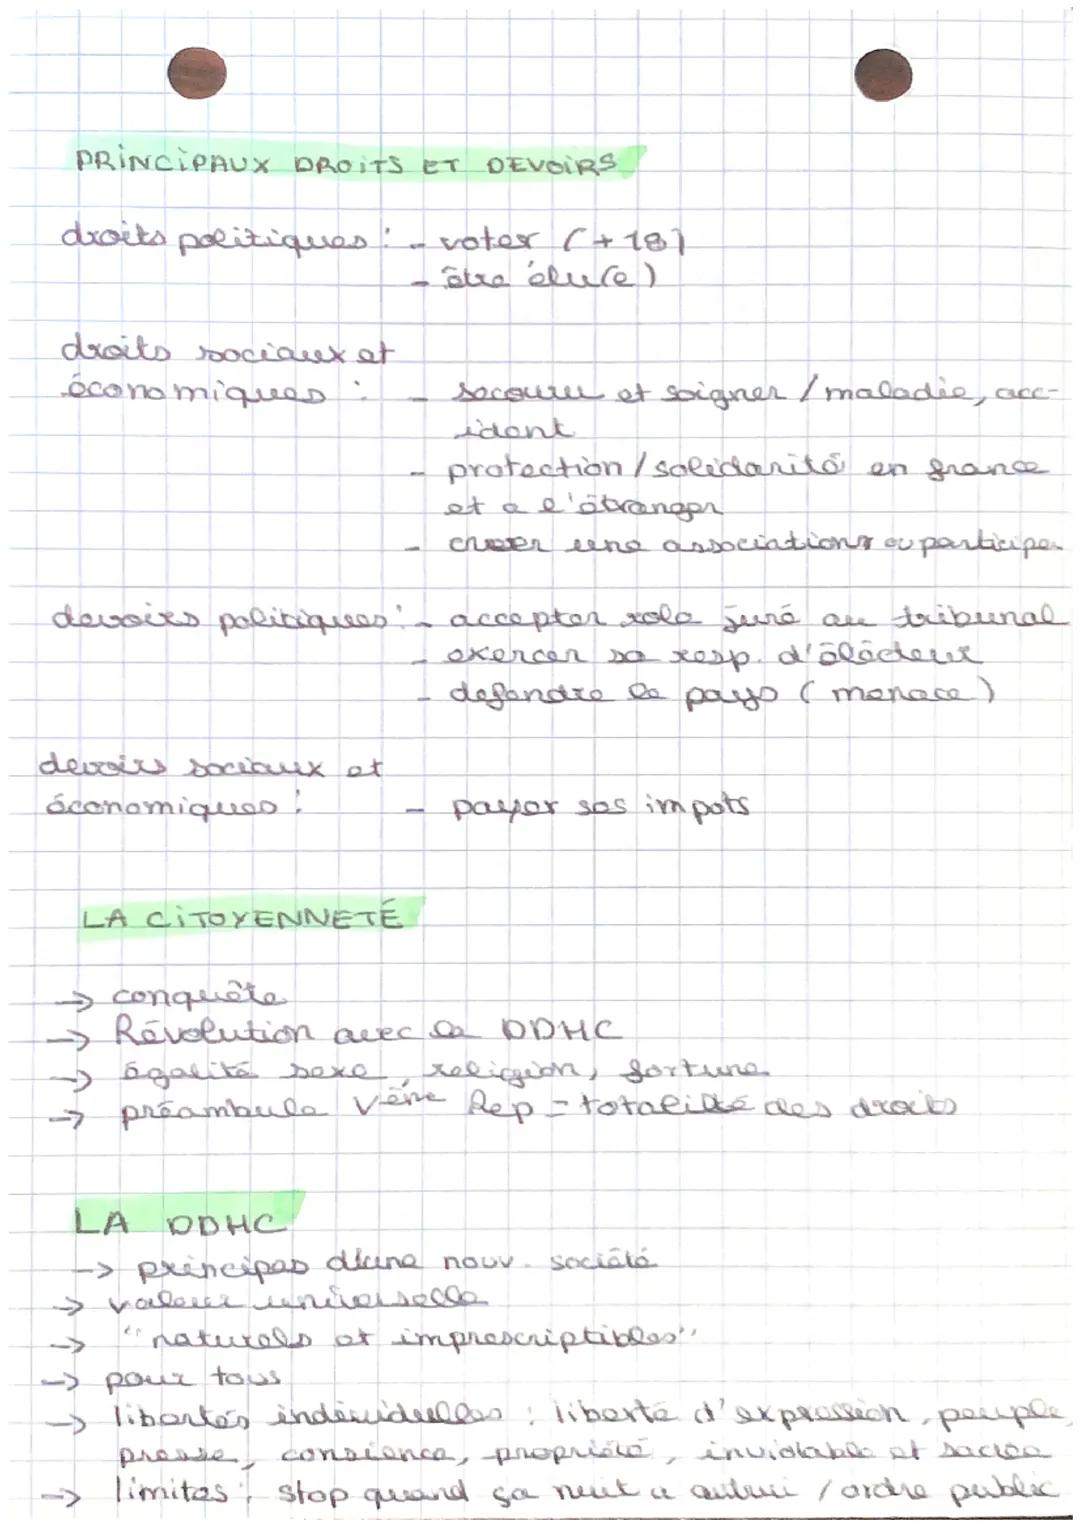 PRINCIPAUX DROITS ET DEVOIRS
droits politiques : - voter (+18)
- être élu(e)
droits sociaux et
économiques : - secourir et soigner / maladie, acc-
ident
- protection / solidarité en france
et a l'étranger
- creer une associations ou participer
devoirs politiques : - accepter role juré au tribunal
- exercer sa resp. d'élécteur
- defendre le pays (menace)
devoirs sociaux et
économiques : - payer ses impots
LA CITOYENNETÉ
→ conquête
→ Révolution avec la DDHC
→ égalité sexe, religion, fortune
→ préambule Vème Rep = totalité des droits
LA DDHC
→ principes d'une nouv. société
→ valeur universelle
→ "naturels et imprescriptibles"
→ pour tous
→ libertés individuelles : liberté d'expression, peuple,
presse, consience, propriété, inviolable et sacrée
→ limites : stop quand ça nuit a autrui / ordre public